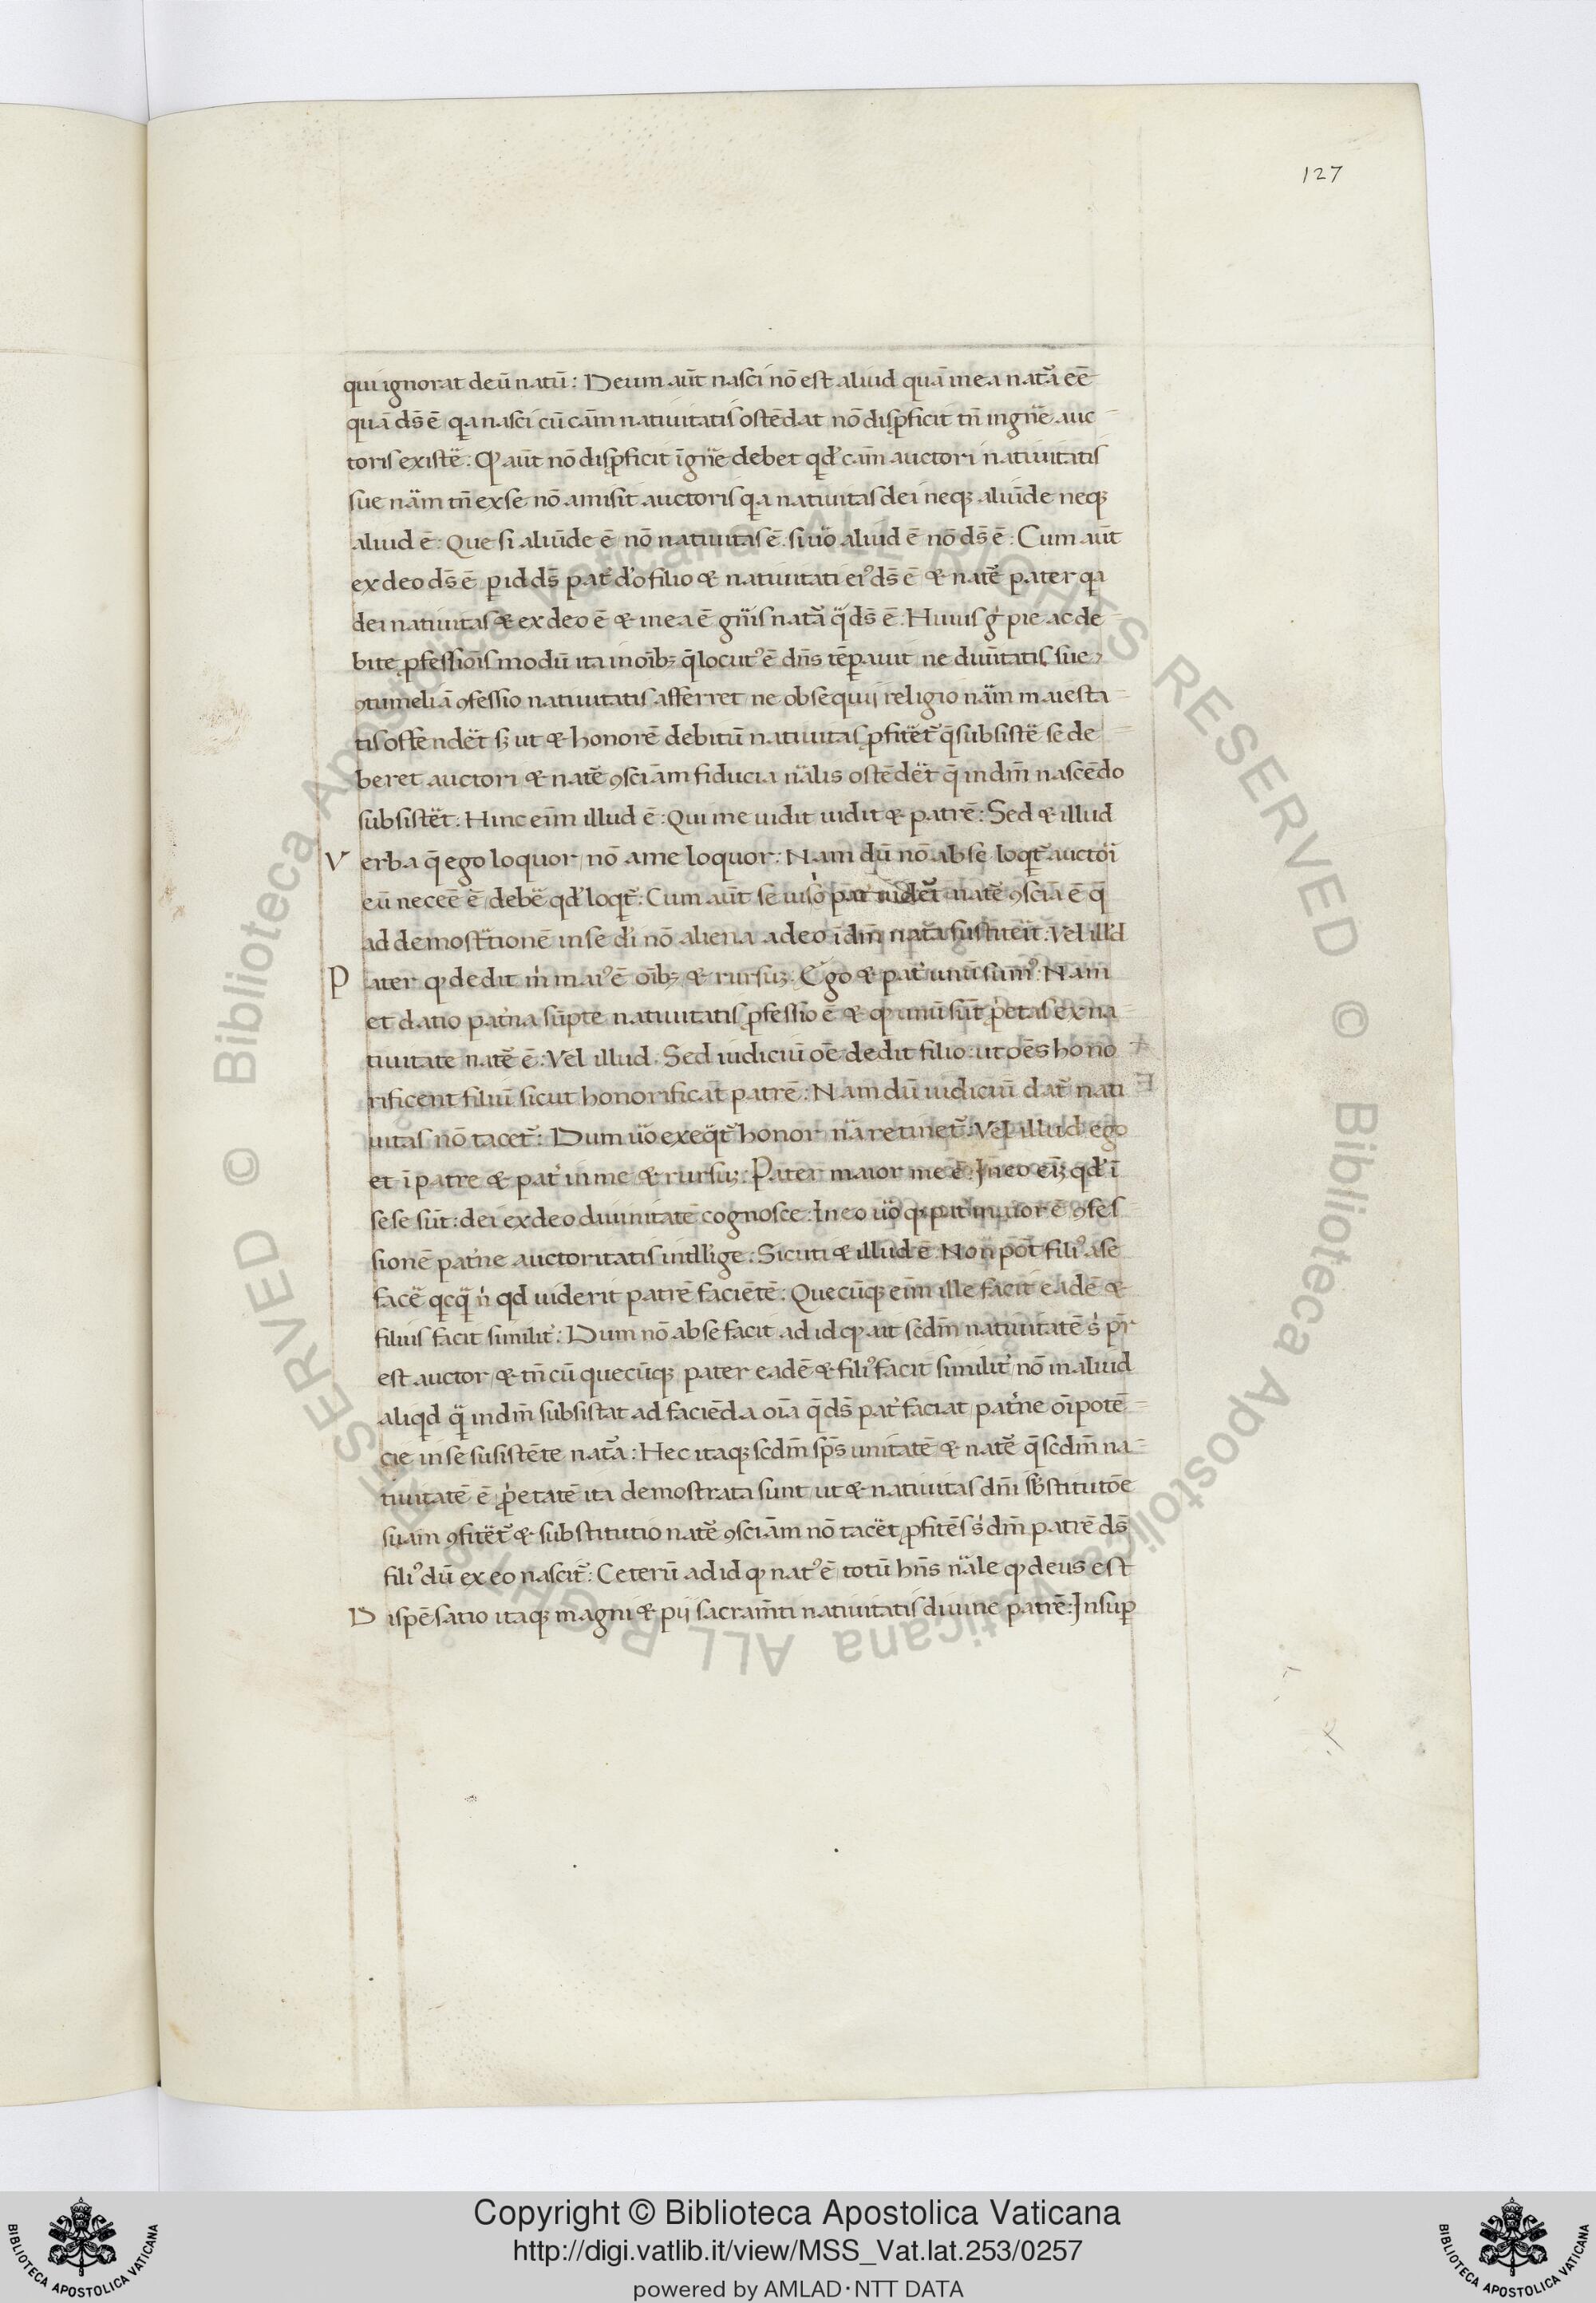 127
qui ignorat deū natū: Deum aūt nasci nō est aliud quā in ea nat᷑a eē
quā ds̄ ē qa nasci cū cām natiuitatis ostēdat nō disꝓficit tn̄ in gn̄e auc
toris existe᷑. Qꝫ aūt nō disꝓficit īgn̄e debet qd' cām auctori natiuitatis
sue nām tn̄ ex se nō amisit auctoris qa natiuitas dei neqꝫ aliūde neqꝫ
aliud ē: Que si aliūde ē nō natiuitas ē. si uo᷑ aliud ē nō ds̄ ē: Cum aūt
ex deo ds̄ ē ꝑ id ds̄ pat' d'o filio & natiuitati eiꝰ ds̄ ē & nat᷑e pater qa
dei natiuitas & ex deo ē & in ea ē gn̄is nat᷑a q᷑ ds̄ ē: Huius g' pie ac de
bite ꝓfessiōis modū ita in oīb; q̄ locutꝰ ē dn̄s tēꝑauit ne diuītatis sue
ꝯtumeliā ꝯfessio natiuitatis afferret ne obsequii religio nām maiesta
tis ostende᷑t sꝫ ut & honorē debitū natiuitas ꝓfite᷑t᷑ q̄ subsiste᷑ se de
beret auctori & nat᷑e ꝯsciām fiducia nālis ostēde᷑t q̄ in dm̄ nascēdo
subsiste᷑t: Hinc eīm illud ē: Qui me uidit uidit & patrē: Sed & illud
Verba q̄ ego loquor nō a me loquor: Nam dū nō ab se loqt᷑ auctori
eū neceē ē debe᷑ qd' loqt᷑: Cum aūt se uiso pat' uide᷑i nat᷑e ꝯsciā ē q̄
ad demost᷑tionē in se d'i nō aliena a deo ī dm̄ nat᷑a
Pater qꝫ dedit m' maiꝰ ē oīb; & rursuꝫ. Ego & pat' unū sumꝰ: Nam
et datio pat'na sūpte natiuitatis ꝓfessio ē & qꝫ unū sūt ꝓ'etas ex na
tiuitate nat᷑e ē: Vel illud. Sed iudiciū oē dedit filio ut oēs hono
rificent filiū sicut honorificāt patrē: Nam dū iudiciū dat᷑ nati
uitas nō tacet᷑: Dum uo᷑ exeq᷑t᷑ honor na᷑ retinet᷑: Vel illud ego
et ī patre & pat' in me & rursuꝫ: Pater maior me ē: In eo eīꝫ qd' ī
sese sūt: dei ex deo diuinitatē cognosce: In eo uo᷑ qꝫ pat' maior ē ꝯfes
sionē pat'ne auctoritatis intll'ige: Sicuti & illud ē: Non pōt filiꝰ a se
face᷑ qcq᷑ n' qd uiderit patrē faciētē: Quecūqꝫ eīm ille facit eadē &
filius facit similit': Dum nō ab se facit ad id qꝫ ut scdm̄ natiuitatē s' pr̄
est auctor & tn̄ cū quecūqꝫ pater eadē & filiꝰ facit similit' nō in aliud
aliqd q᷑ in dm̄ subsistat ad faciēda oīa q̄ ds̄ pat' faciat pat'ne oīpotē
cie in se susistēte nat᷑a: Hec itaqꝫ scdm̄ sps̄ unitatē & nat᷑e q̄ scdm̄ na
tiuitatē ē ꝓ'etatē ita demostrata sunt ut & natiuitas dn̄i sb'stitutōe
suam ꝯfite᷑t᷑ & substitutio nat᷑e ꝯsciām nō tace᷑t ꝓfitēs s' dm̄ patrē ds̄
filiꝰ dū ex eo nascit᷑: Ceterū ad id qꝫ natꝰ ē totū hn̄s nāle qꝫ deus est
Dispēsatio itaqꝫ magni & pii sacramn̄ti natiuitatis diuine patrē: Insuꝑ
Copyright © Biblioteca Apostolica Vaticana
http://digi.vatlib.it/view/MSS_Vat.lat.253/0257
powered by AMLAD·NTT DATA